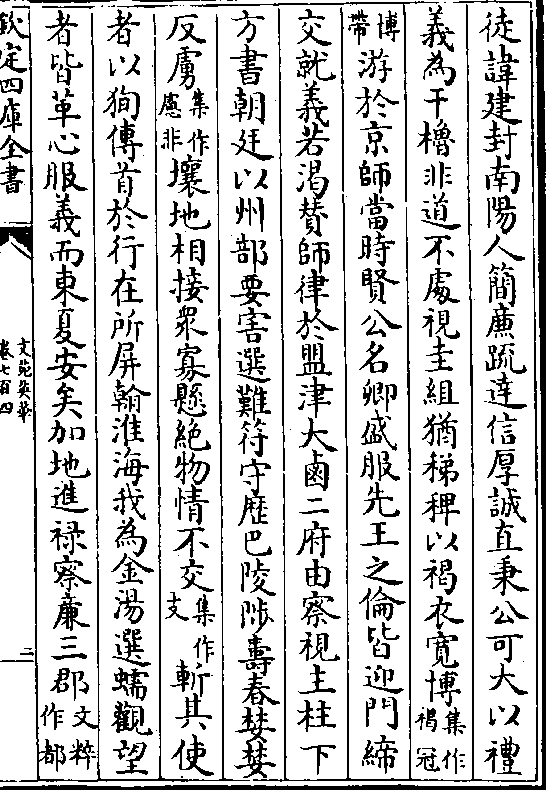 徒諱建封南陽人簡廉疏達信厚誠直秉公可大以禮
義為干櫓非道不處視圭組猶稊稗以褐衣寬博集作褐冠
博帶游於京師當時賢公名卿盛服先王之倫皆迎門締
交就義若渴賛師律於盟津大鹵二府由察視主柱下
方書朝廷以州部要害選難符守歴巴陵陟壽春婪婪
反虜集作慮非壤地相接衆寡懸絶物情不交集作支斬其使
者以狥傳首於行在所屏翰淮海我為金湯選蠕觀望
者皆革心服義而東夏安矣加地進禄察廉三郡文粹作都
欽定四庫全書
文苑英華
卷七百四
二